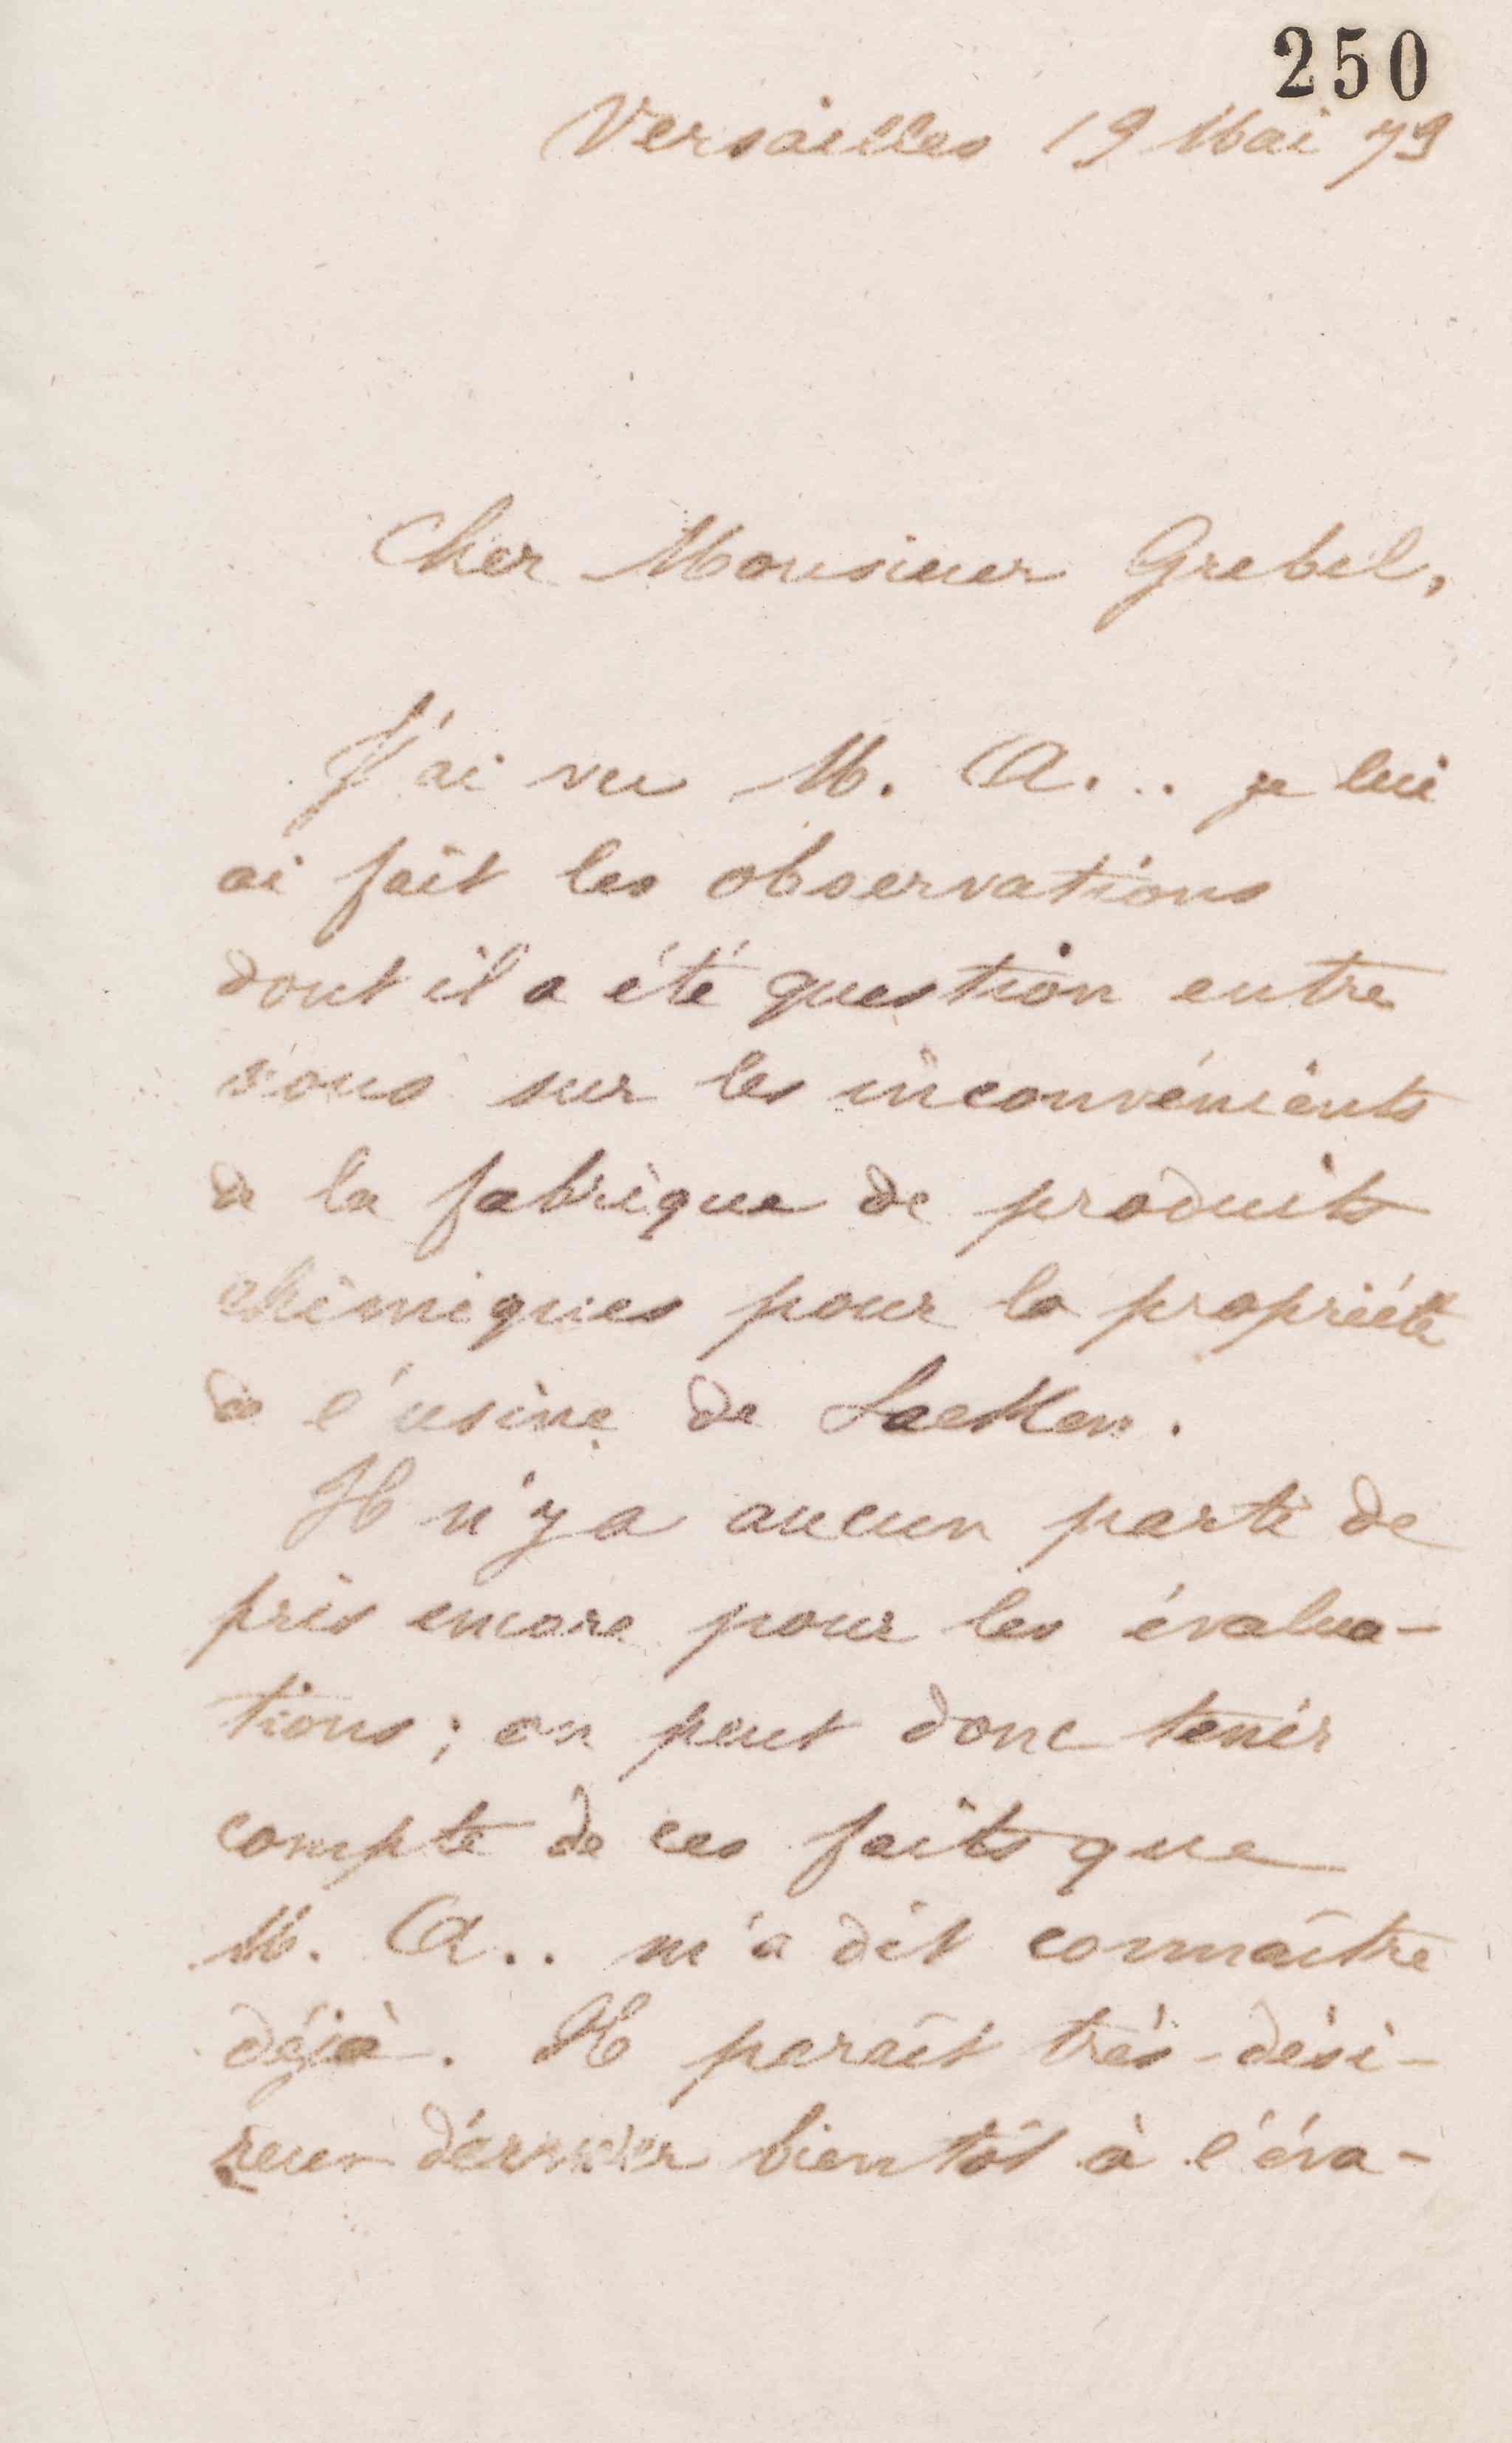 250
Versailles 19 Mai 79
Cher Monsieur Grebel,
J'ai vu M. A... je lui
ai fait les observations
dont il a été question entre
nous sur les inconvénients
de la fabrique de produits
chimiques pour la propriété
de l'usine de Laeken.
Il n'y a aucun parti de
pris encore pour les évalua-
tions; on peut donc tenir
compte de ces faits que
M. A.. m'a dit connaître
déjà. Il paraît très-dési-
reux bientôt à l'éva-